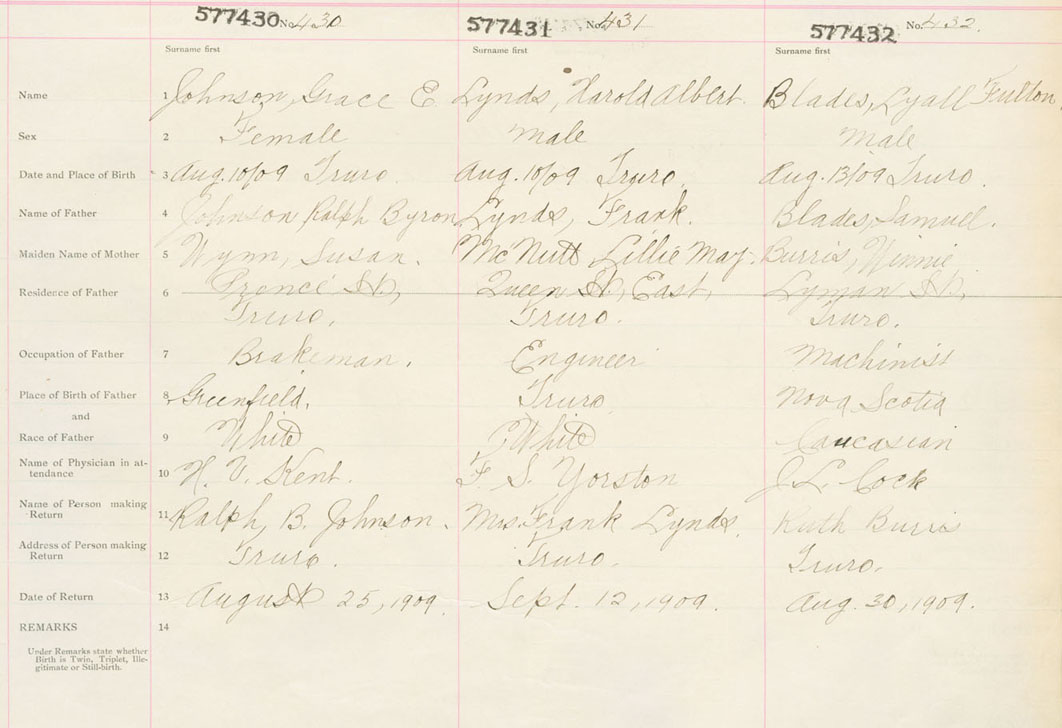 577430 No. 430 577431 No. 431 577432 No. 432.
Surname first Surname first Surname first
Name 1 Johnson, Grace E. Lynds, Harold Albert. Blades, Lyall Fulton
Sex 2 Female male Male
Date and Place of Birth 3 Aug. 10/09 Truro. Aug. 10/09 Truro. Aug. 13/09 Truro.
Name of Father 4 Johnson Ralph Byron Lynds, Frank. Blades, Samuel.
Maiden Name of Mother 5 Wynn, Susan. McNutt Lillie May. Burris, Winnie
Residence of Father 6 Prince St., Queen St., East, Lyman St.,
Truro. Truro. Truro.
Occupation of Father 7 Brakeman. Engineer Machinist
Place of Birth of Father 8 Greenfield. Truro Nova Scotia
and
Race of Father 9 White White Caucasian
Name of Physician in at-
tendance 10 H. V. Kent. F. S. Yorston J. L. Cock
Name of Person making
Return 11 Ralph, B. Johnson. Mrs. Frank Lynds. Ruth Burris
Address of Person making
Return 12 Truro. Truro. Truro.
Date of Return 13 August 25, 1909. Sept. 12, 1909. Aug. 30, 1909.
REMARKS 14
Under Remarks state whether
Birth is Twin, Triplet, Ille-
gitimate or Still-birth.